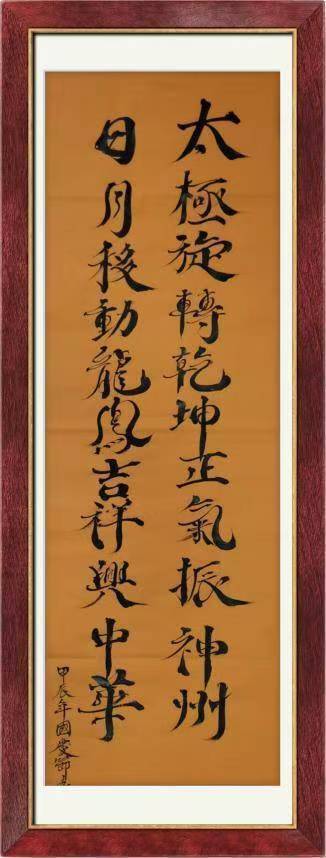 太極旋轉乾坤正氣振神州
日月移動龍鳳吉祥興中華
甲辰年國慶節